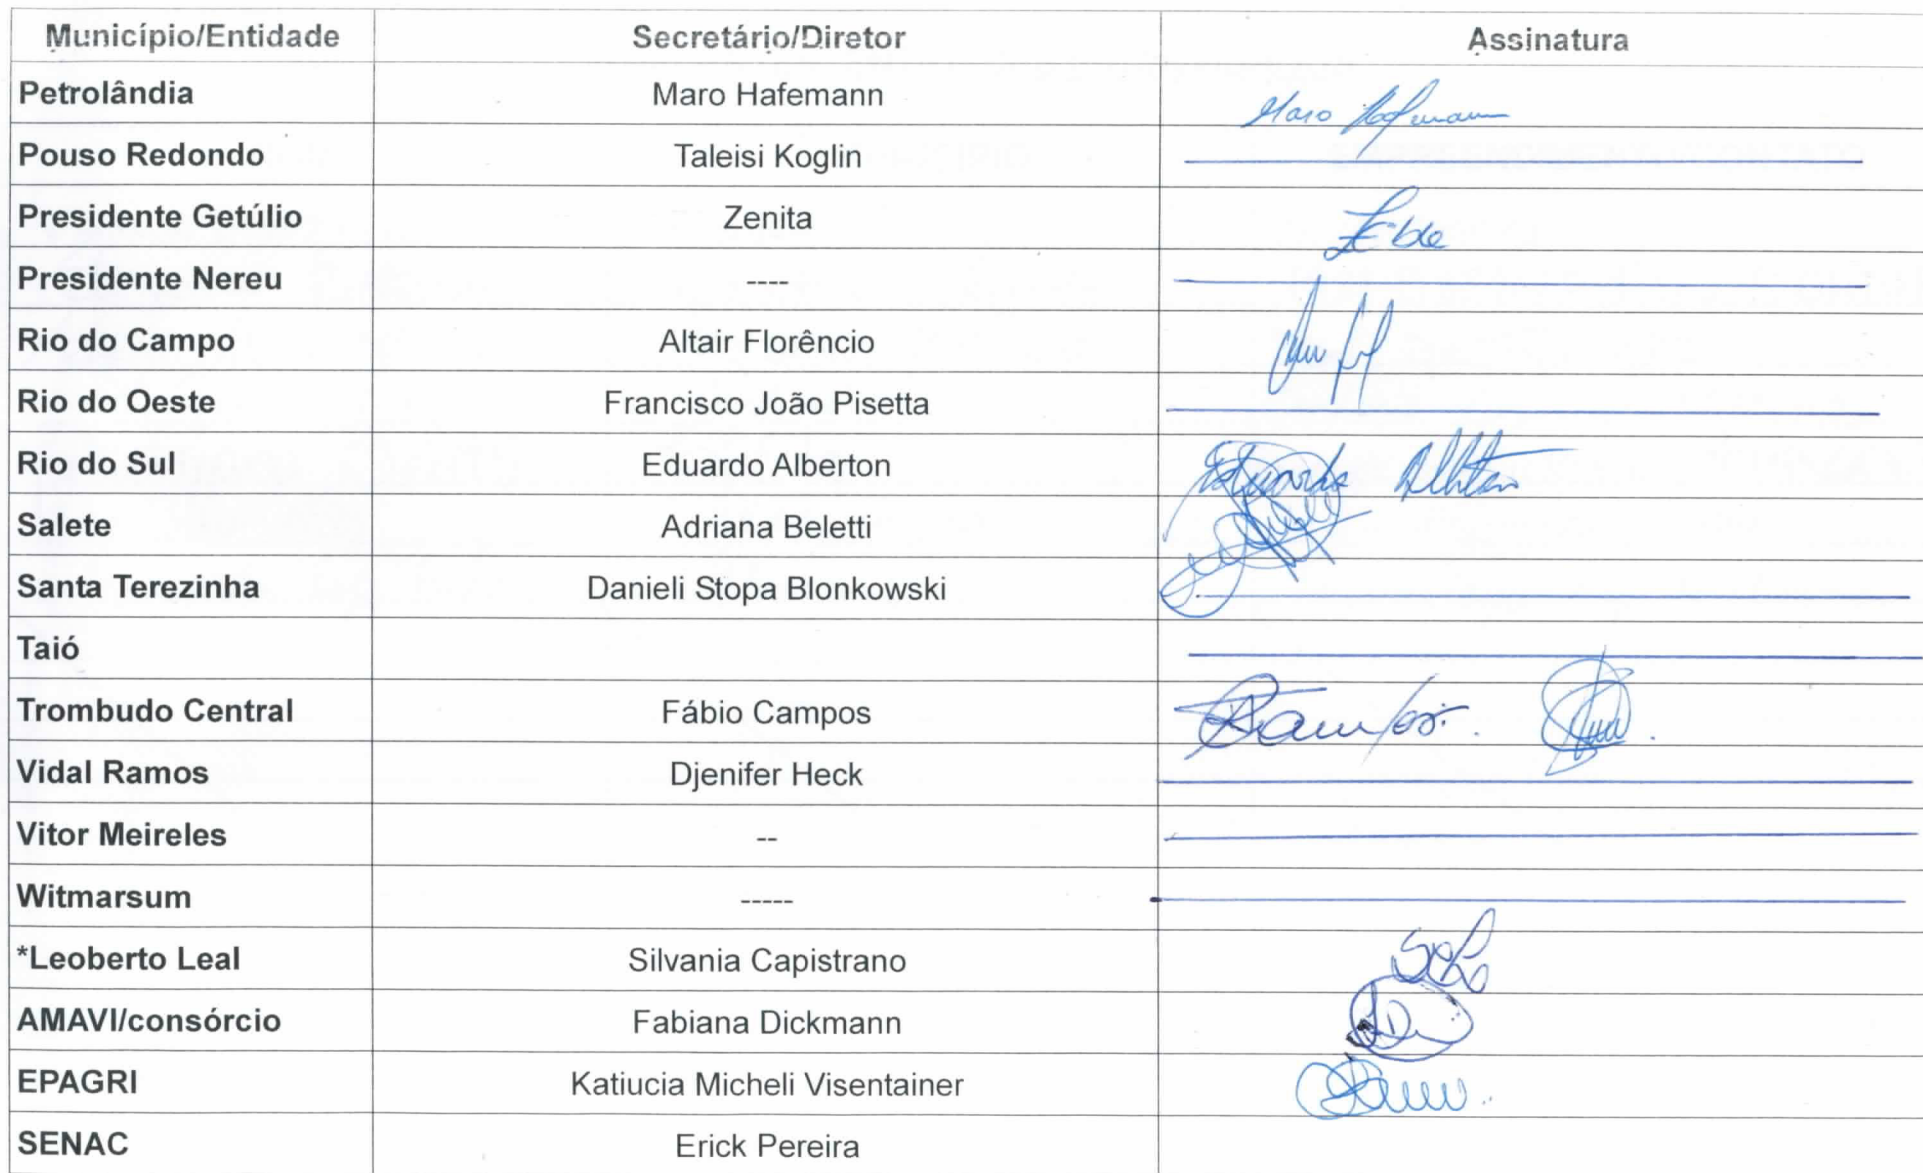 Município/Entidade Secretário/Diretor Assinatura
Petrolândia Maro Hafemann Maro Hafemann
Pouso Redondo Taleisi Koglin
Presidente Getúlio Zenita
Presidente Nereu ----
Rio do Campo Altair Florêncio
Rio do Oeste Francisco João Pisetta
Rio do Sul Eduardo Alberton Eduardo Alberton
Salete Adriana Beletti
Santa Terezinha Danieli Stopa Blonkowski
Taió
Trombudo Central Fábio Campos
Vidal Ramos Djenifer Heck
Vitor Meireles --
Witmarsum -----
*Leoberto Leal Silvania Capistrano
AMAVI/consórcio Fabiana Dickmann
EPAGRI Katiucia Micheli Visentainer
SENAC Erick Pereira